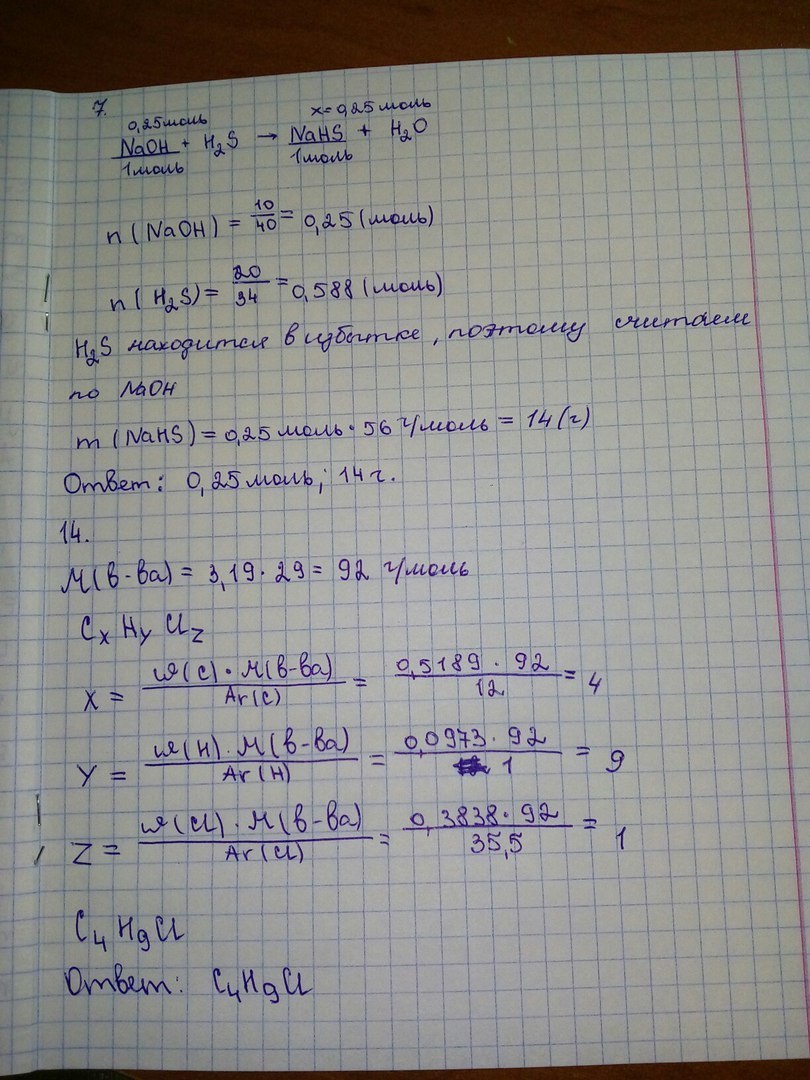 7.
0,25моль x=0,25моль
NaOH + H₂S → NaHS + H₂O
1моль 1моль
n(NaOH) = 10/40 = 0,25(моль)
n(H₂S) = 20/34 = 0,588(моль)
H₂S находится в избытке, поэтому считаем
по NaOH
m(NaHS) = 0,25 моль · 56 г/моль = 14(г)
Ответ: 0,25моль; 14г.
14.
M(в-ва) = 3,19 · 29 = 92 г/моль
CxHyClz
X = ω(C) · M(в-ва)/Ar(C) = 0,5189 · 92/12 = 4
Y = ω(H) · M(в-ва)/Ar(H) = 0,0973 · 92/1 = 9
Z = ω(Cl) · M(в-ва)/Ar(Cl) = 0,3838 · 92/35,5 = 1
C₄H₉Cl
Ответ: C₄H₉Cl